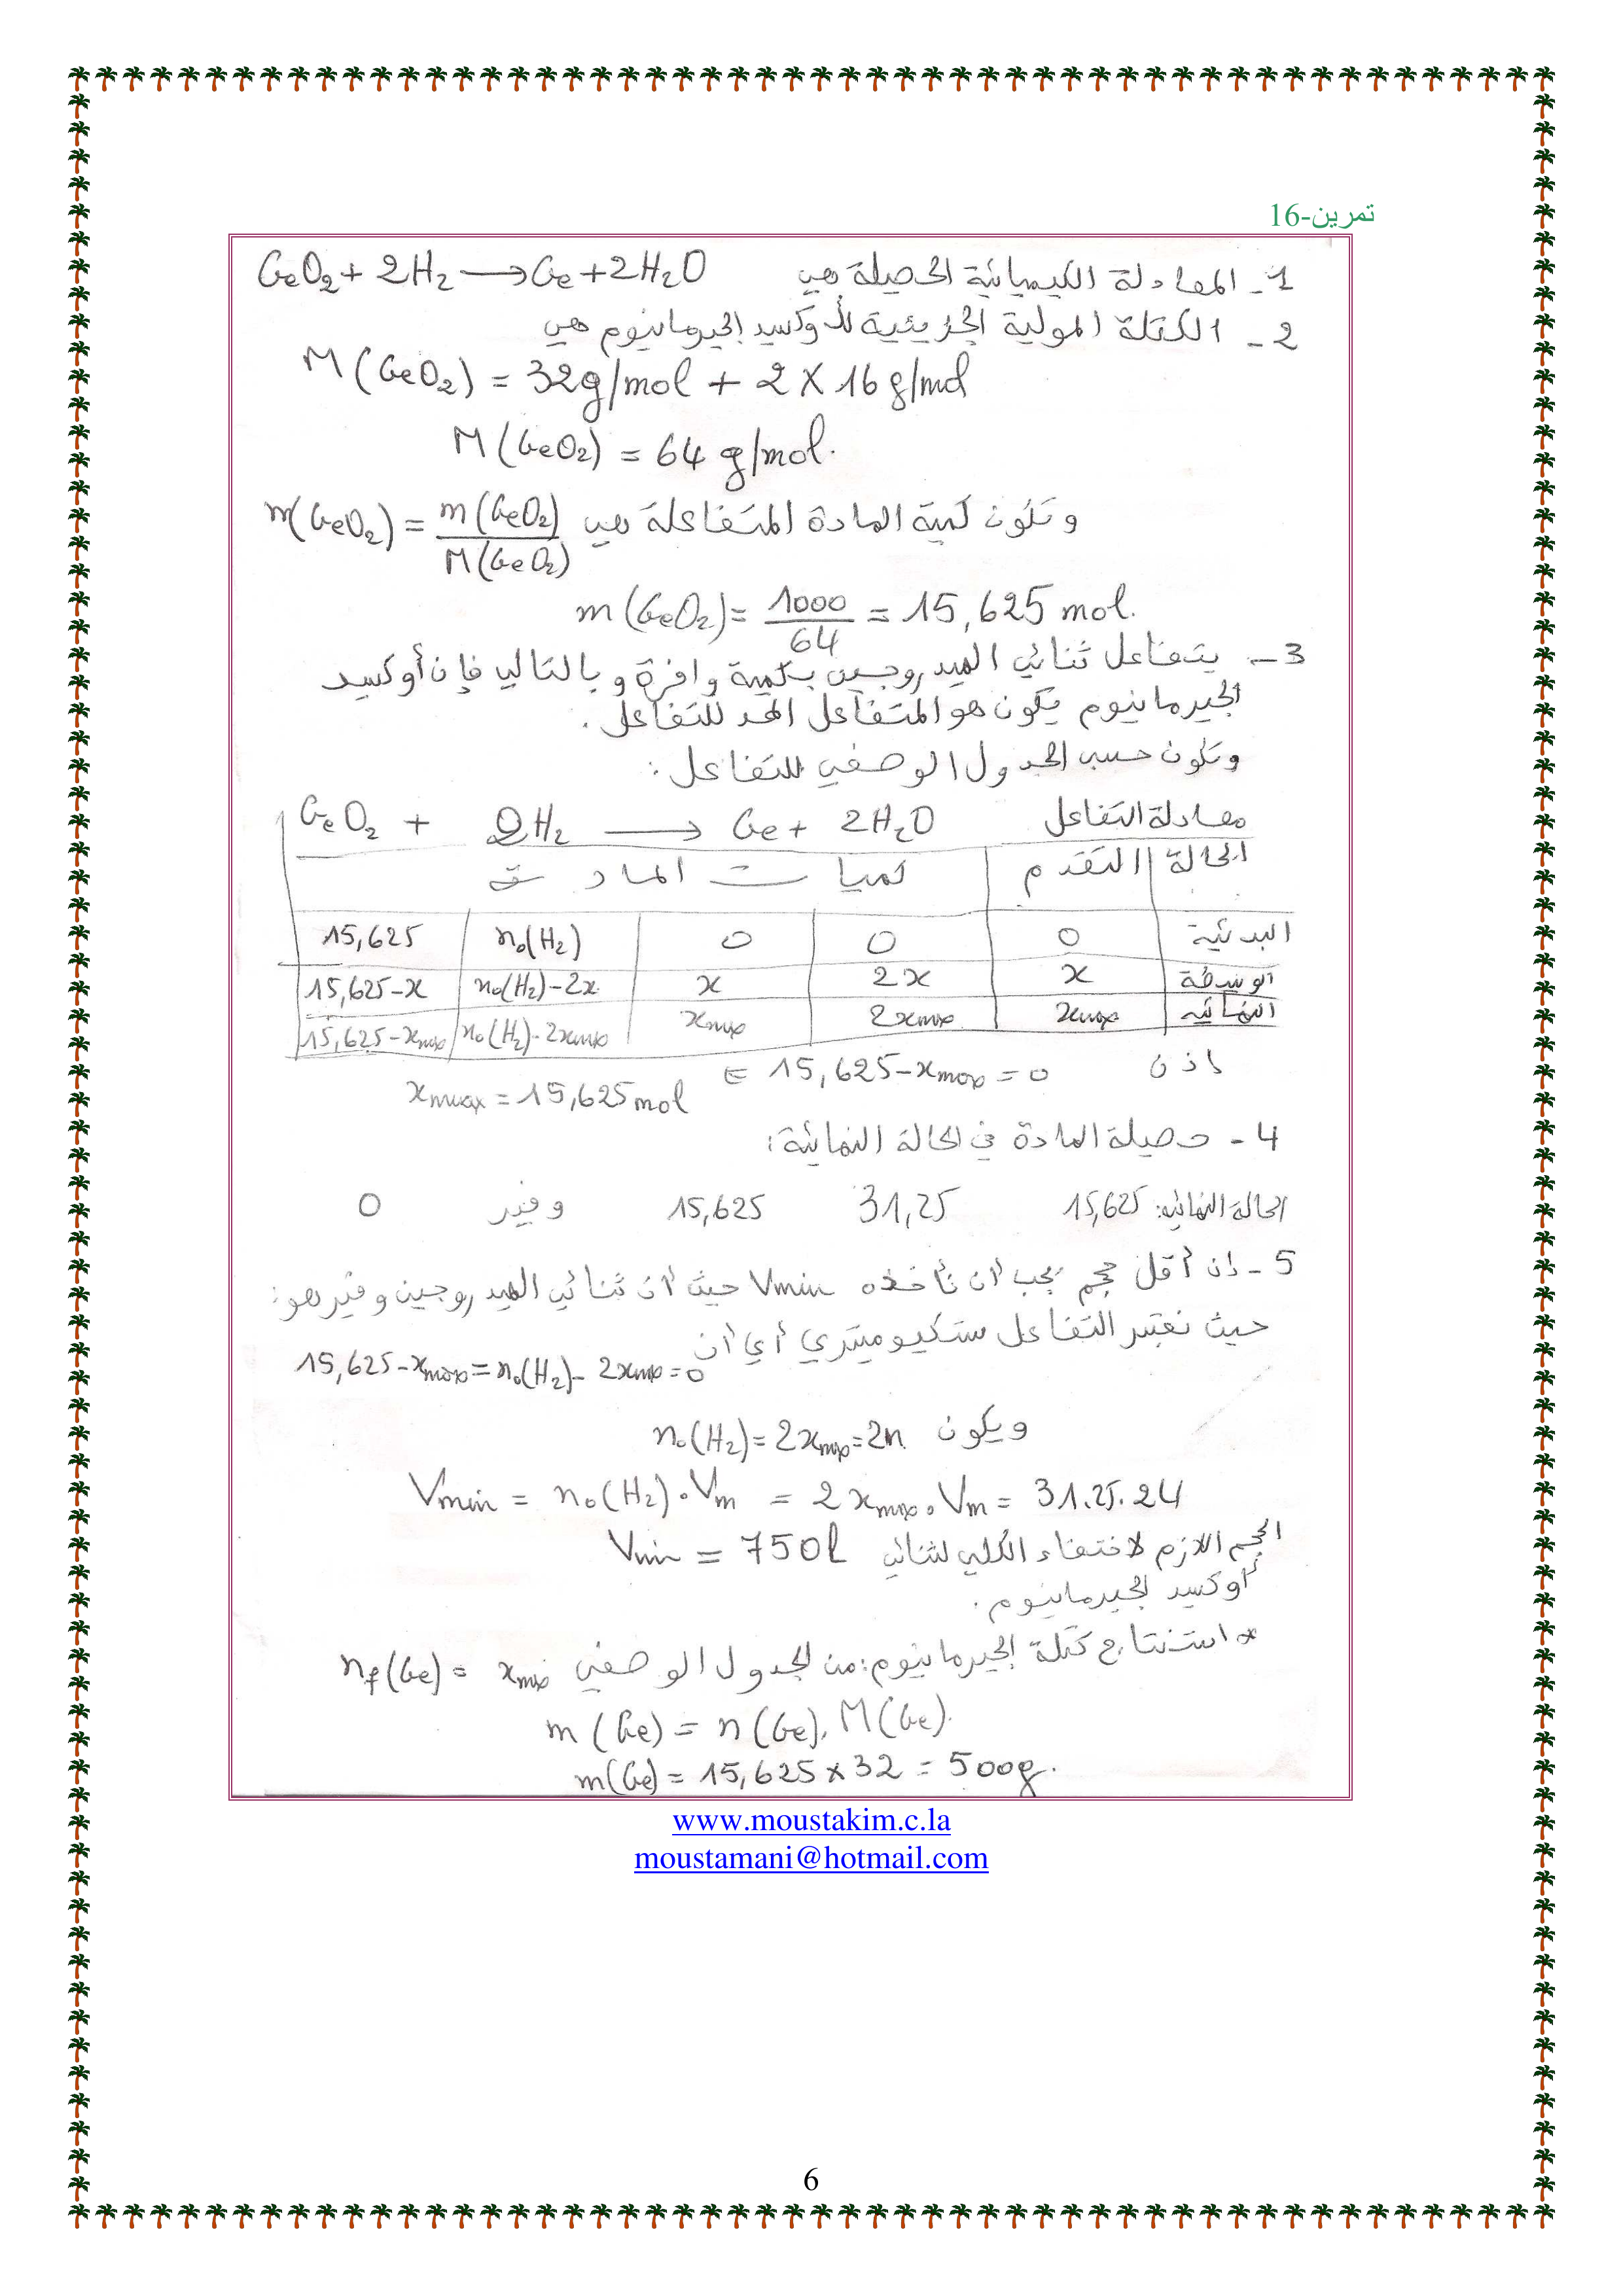 تمرين-16
1- المعادلة الكيميائية الحصيلة هي GeO₂ + 2H₂ → Ge + 2H₂O
2- الكتلة المولية الجزيئية لأوكسيد الجيرمانيوم هي
M(GeO₂) = 32g/mol + 2 X 16 g/mol
M(GeO₂) = 64 g/mol.
وتكون كمية المادة المتفاعلة هي n(GeO₂) = m(GeO₂)/M(GeO₂)
n(GeO₂) = 1000/64 = 15,625 mol.
3- يتفاعل ثنائي الهيدروجين بكمية وافرة وبالتالي فإن أوكسيد
الجيرمانيوم يكون هو المتفاعل المحد للتفاعل.
وتكون حسب الجدول الوصفي للتفاعل:
معادلة التفاعل GeO₂ + 2H₂ → Ge + 2H₂O
الحالة التقدم كميات المادة
البدئية 0 0 0 n₀(H₂) 15,625
الوسطية x 2x x n₀(H₂)-2x 15,625-x
النهائية xmax 2xmax xmax n₀(H₂)-2xmax 15,625-xmax
اذن 15,625-xmax = 0 ∈ xmax = 15,625 mol
4- حصيلة المادة في الحالة النهائية:
الحالة النهائية: 15,625 31,25 15,625 وفير 0
5- إن أقل حجم يجب أن نأخذه Vmin حيث أن ثنائي الهيدروجين وفير هو:
حيث نعتبر التفاعل ستكيوميتري أي أن 15,625-xmax = n₀(H₂)-2xmax = 0
ويكون n₀(H₂) = 2xmax = 2n
Vmin = n₀(H₂).Vm = 2xmax.Vm = 31.25.24
Vmin = 750l الحجم اللازم لاختفاء الكلي لثنائي
أوكسيد الجيرمانيوم.
* استنتاج كتلة الجيرمانيوم: من الجدول الوصفي nf(Ge) = xmax
m(Ge) = n(Ge).M(Ge).
m(Ge) = 15,625 x 32 = 500g.
www.moustakim.c.la
moustamani@hotmail.com
6